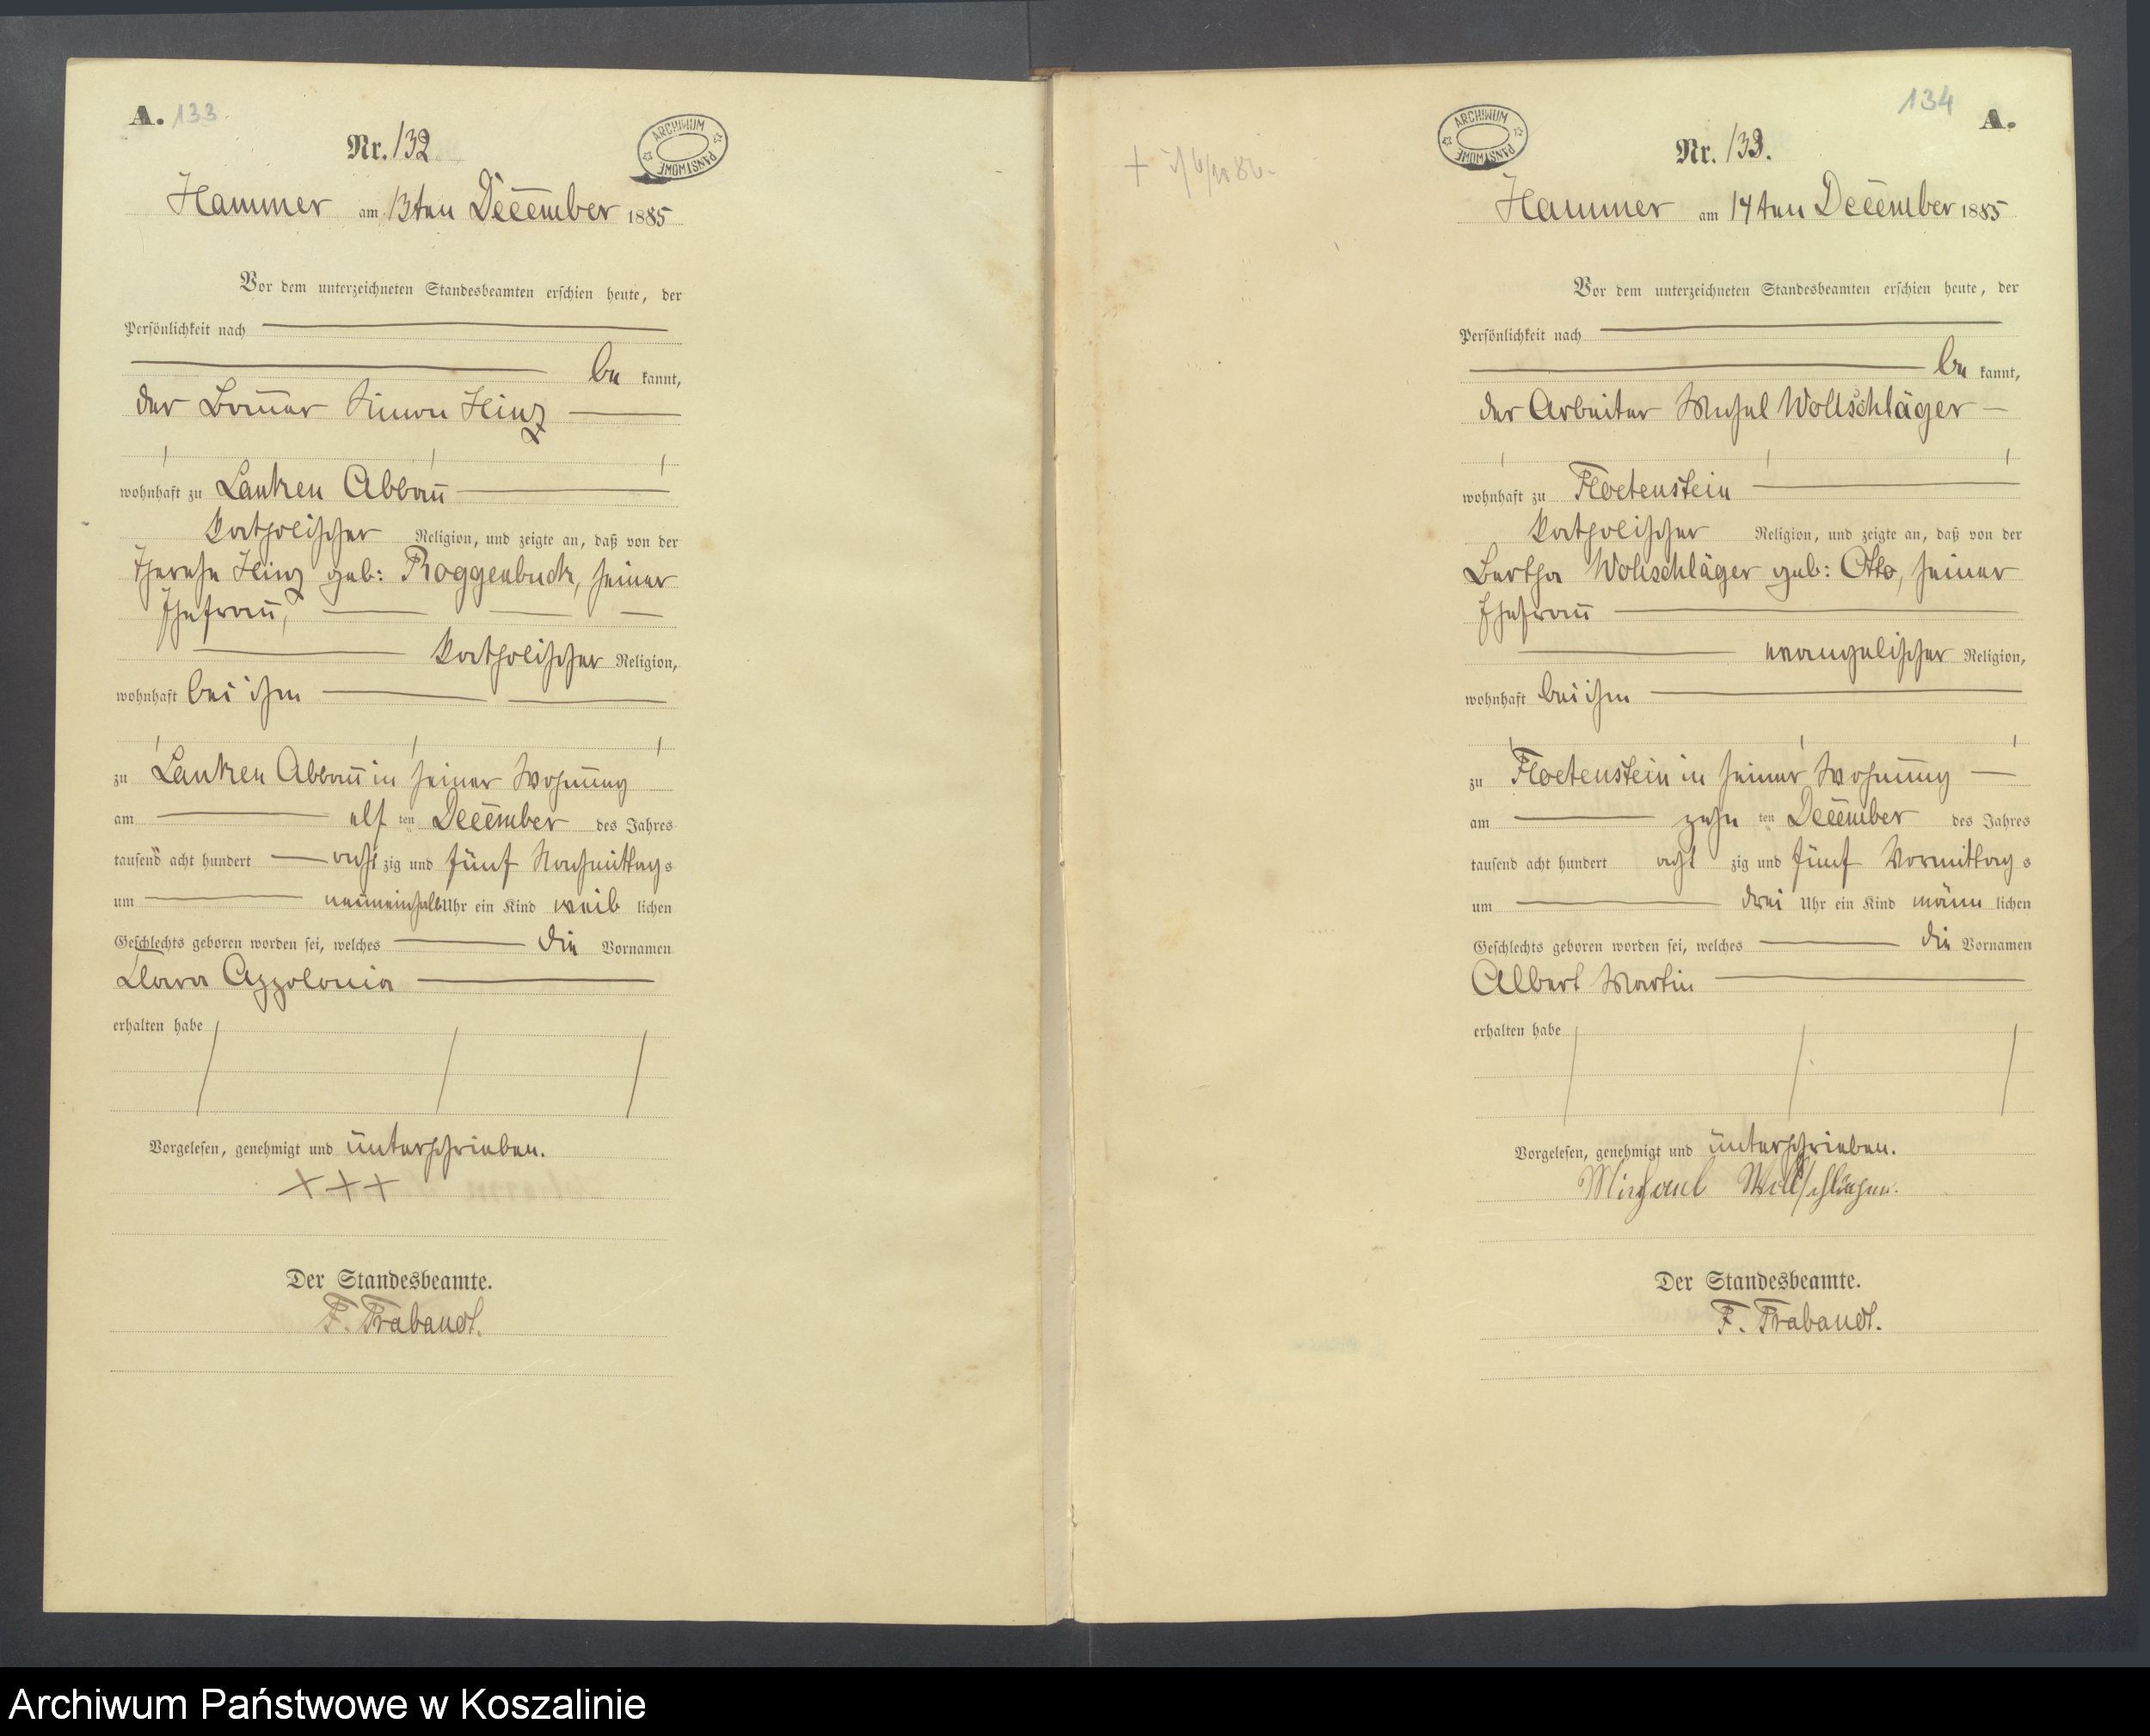 A. 133
Nr. 132
ARCHIWUM PAŃSTWOWE
Hammer am 13ten December 1885
Vor dem unterzeichneten Standesbeamten erschien heute, der
Persönlichkeit nach
be kannt,
der Bauer Simon Hinz
wohnhaft zu Lanken Abbau
katholischer Religion, und zeigte an, daß von der
Therese Hinz geb: Roggenbuck, seiner
Ehefrau,
katholischer Religion,
wohnhaft bei ihm
zu Lanken Abbau in seiner Wohnung
am elf ten December des Jahres
tausend acht hundert acht zig und fünf Nachmittags
um neuneinhalb Uhr ein Kind weib lichen
Geschlechts geboren worden sei, welches die Vornamen
Clara Appolonia
erhalten habe
Vorgelesen, genehmigt und unterschrieben.
+++
Der Standesbeamte.
F. Trabandt.
134 A.
ARCHIWUM PAŃSTWOWE
Nr. 133.
Hammer am 14ten December 1885
Vor dem unterzeichneten Standesbeamten erschien heute, der
Persönlichkeit nach
be kannt,
der Arbeiter Michel Wollschläger
wohnhaft zu Floetenstein
katholischer Religion, und zeigte an, daß von der
Bertha Wollschläger geb: Otto, seiner
Ehefrau
evangelischer Religion,
wohnhaft bei ihm
zu Floetenstein in seiner Wohnung
am zehn ten December des Jahres
tausend acht hundert acht zig und fünf Vormittags
um drei Uhr ein Kind männ lichen
Geschlechts geboren worden sei, welches die Vornamen
Albert Martin
erhalten habe
Vorgelesen, genehmigt und unterschrieben.
Michael Wollschläger.
Der Standesbeamte.
F. Trabandt.
Archiwum Państwowe w Koszalinie